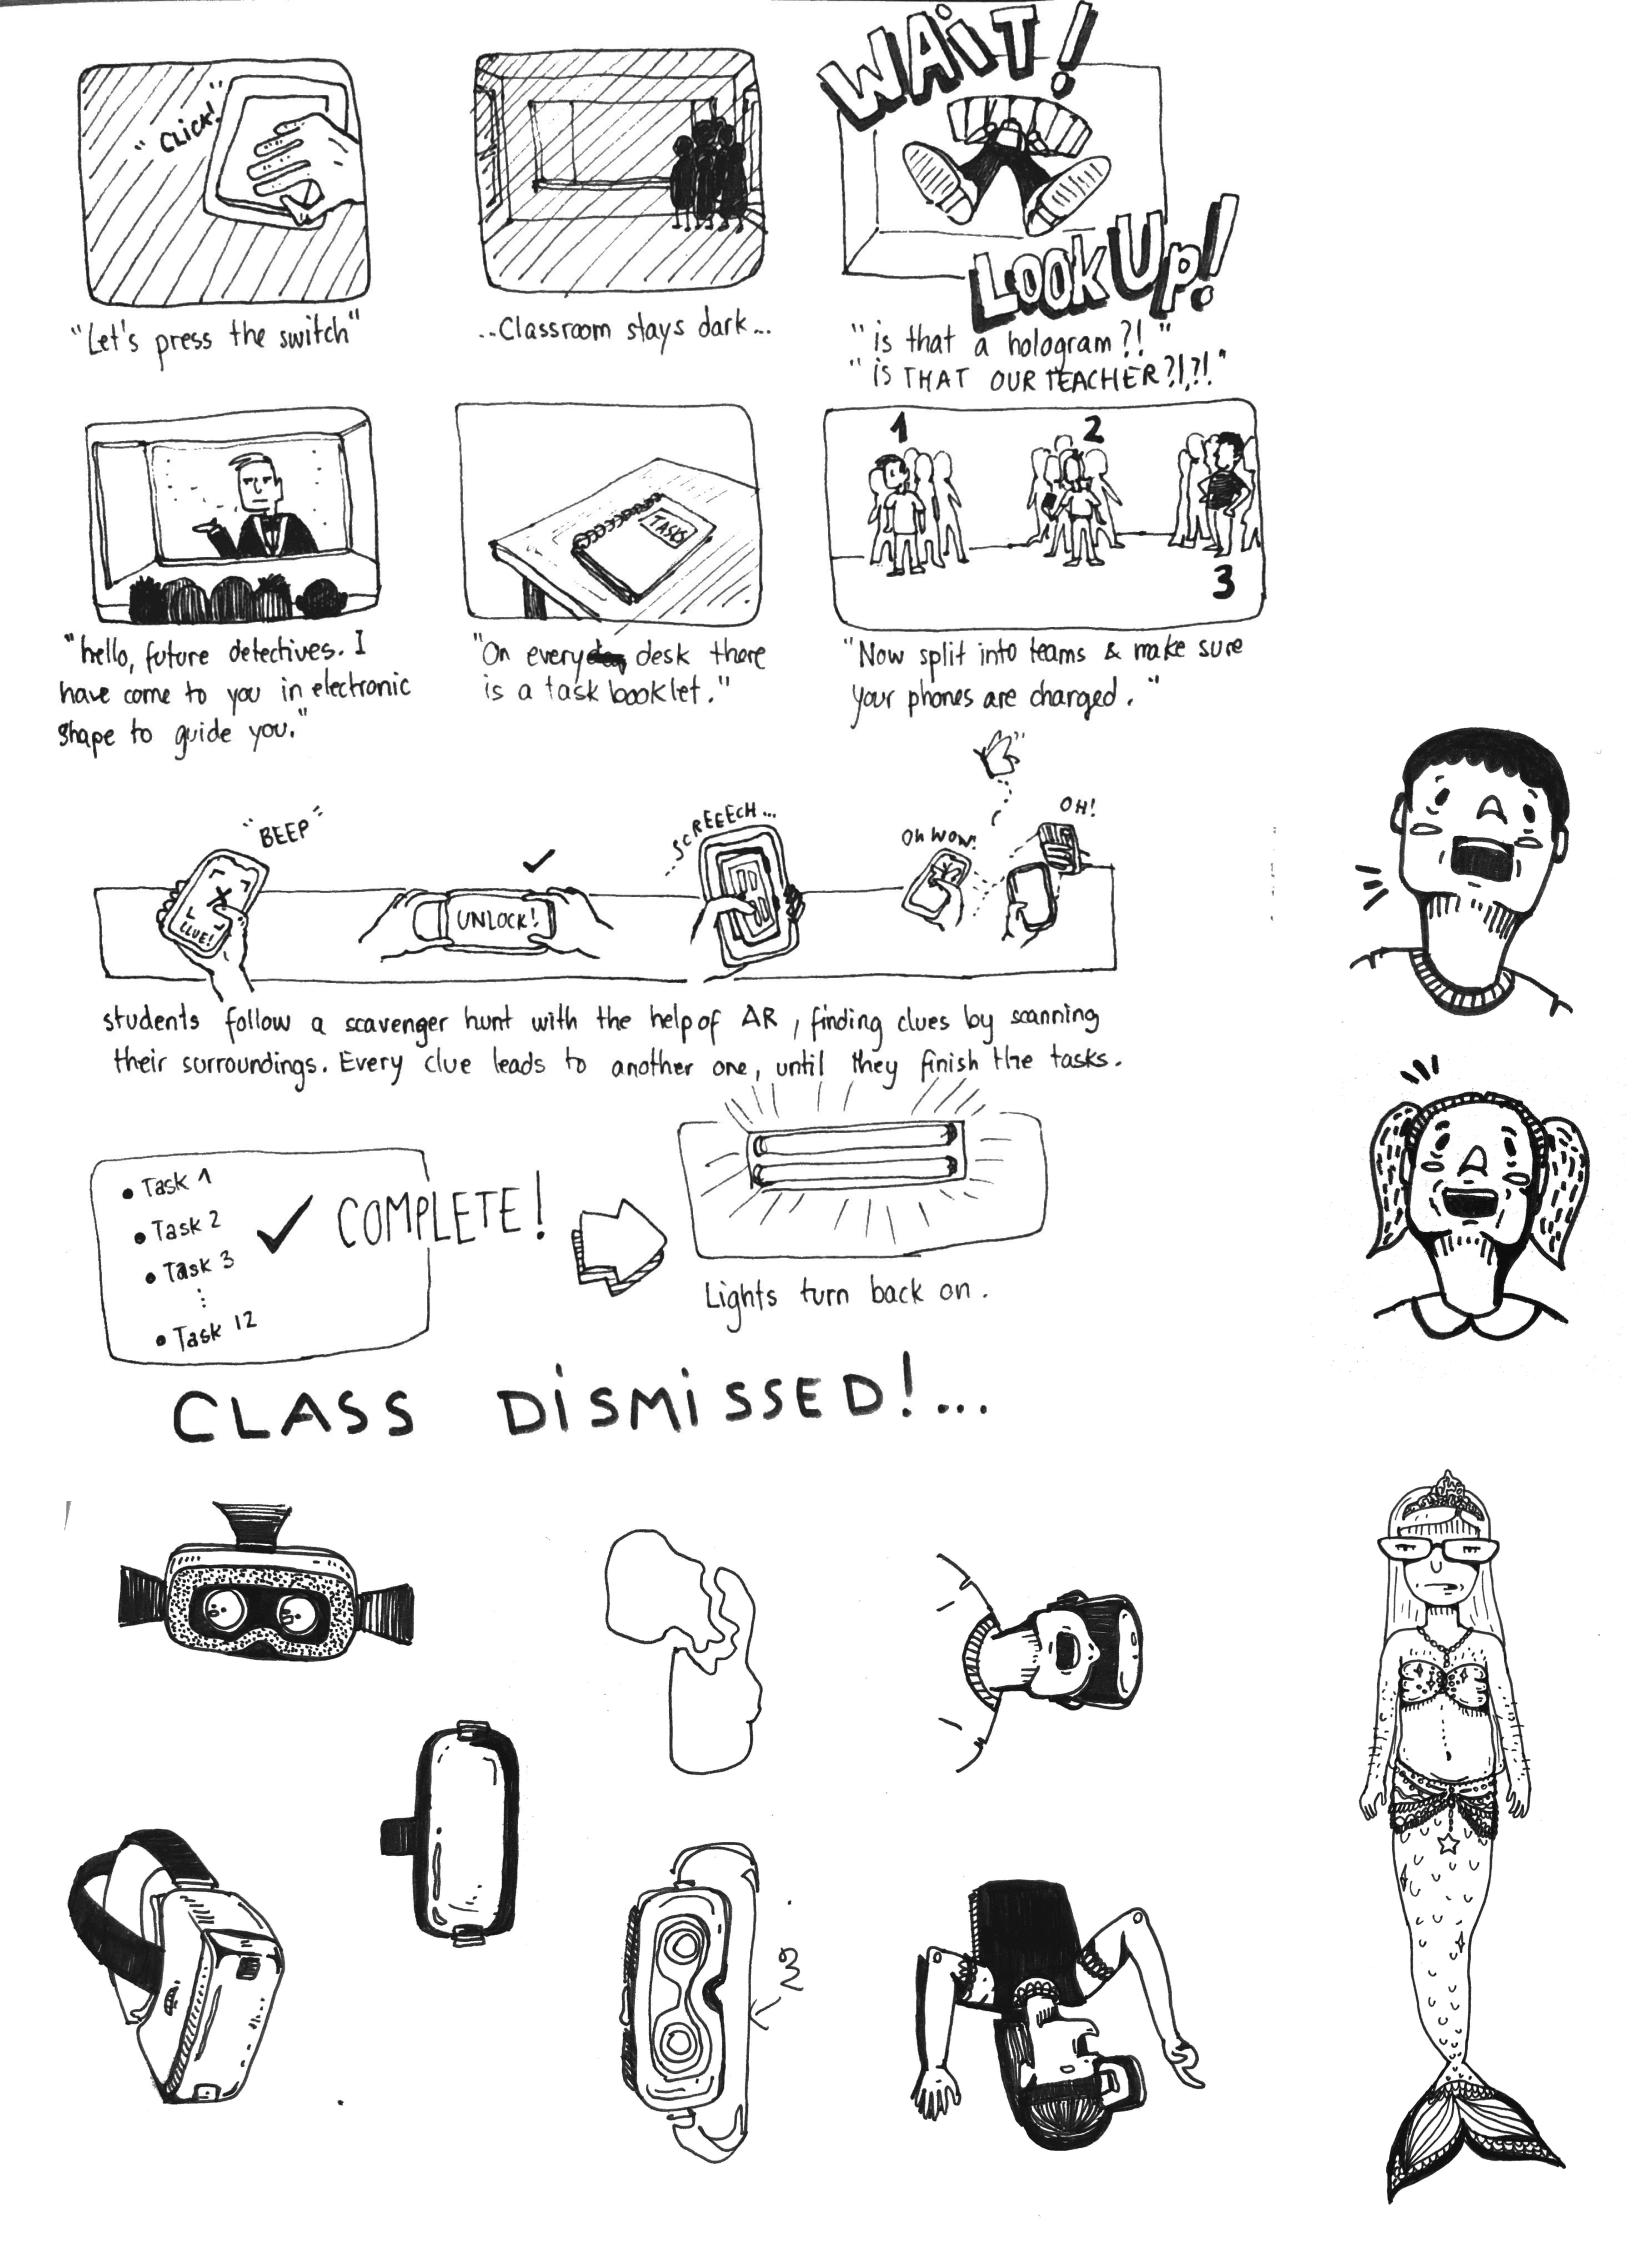 "CLICK!"
"Let's press the switch"
...Classroom stays dark...
WAiT!
LOOK Up!
"is that a hologram?!"
"is THAT OUR TEACHER?!,?!"
"hello, future detectives. I
have come to you in electronic
shape to guide you."
TASKS
"On every desk there
is a task booklet."
1
2
3
"Now split into teams & make sure
your phones are charged."
"BEEP"
CLUE!
UNLOCK!
SCREEECH...
Oh WOW!
OH!
students follow a scavenger hunt with the help of AR, finding clues by scanning
their surroundings. Every clue leads to another one, until they finish the tasks.
• Task 1
• Task 2
• Task 3
⋮
• Task 12
✓ COMPLETE!
Lights turn back on.
CLASS DiSMiSSED!...